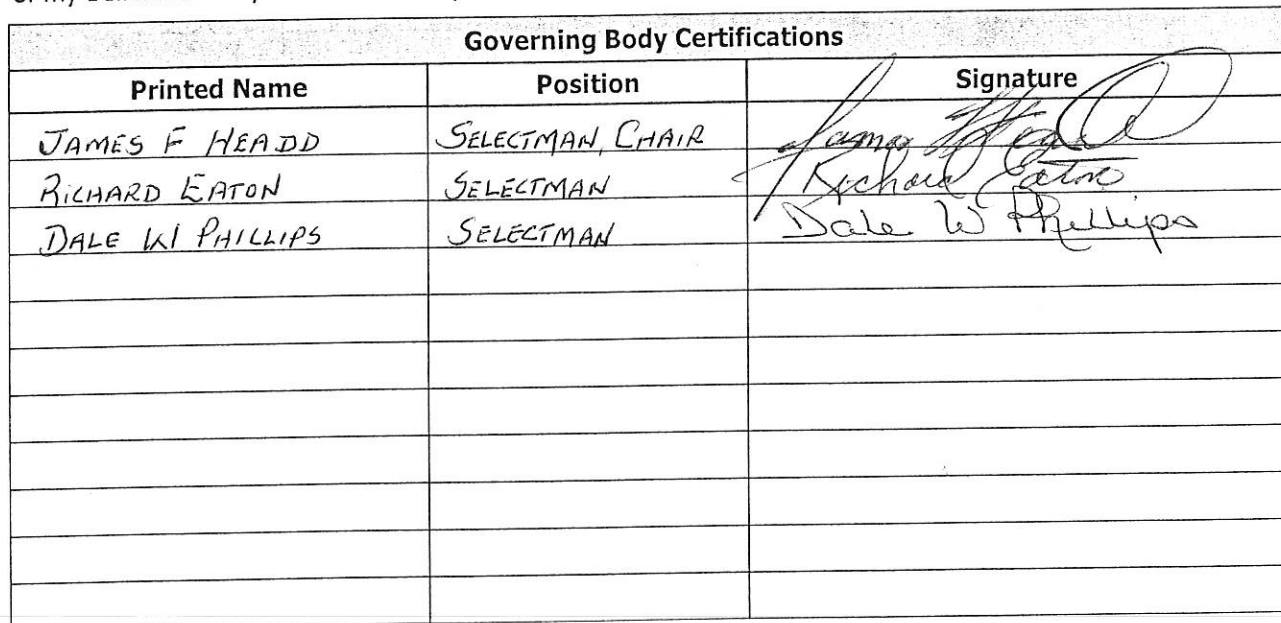 Governing Body Certifications
Printed Name Position Signature
JAMES F HEADD SELECTMAN, CHAIR James F Headd
RICHARD EATON SELECTMAN Richard Eaton
DALE W PHILLIPS SELECTMAN Dale W Phillips